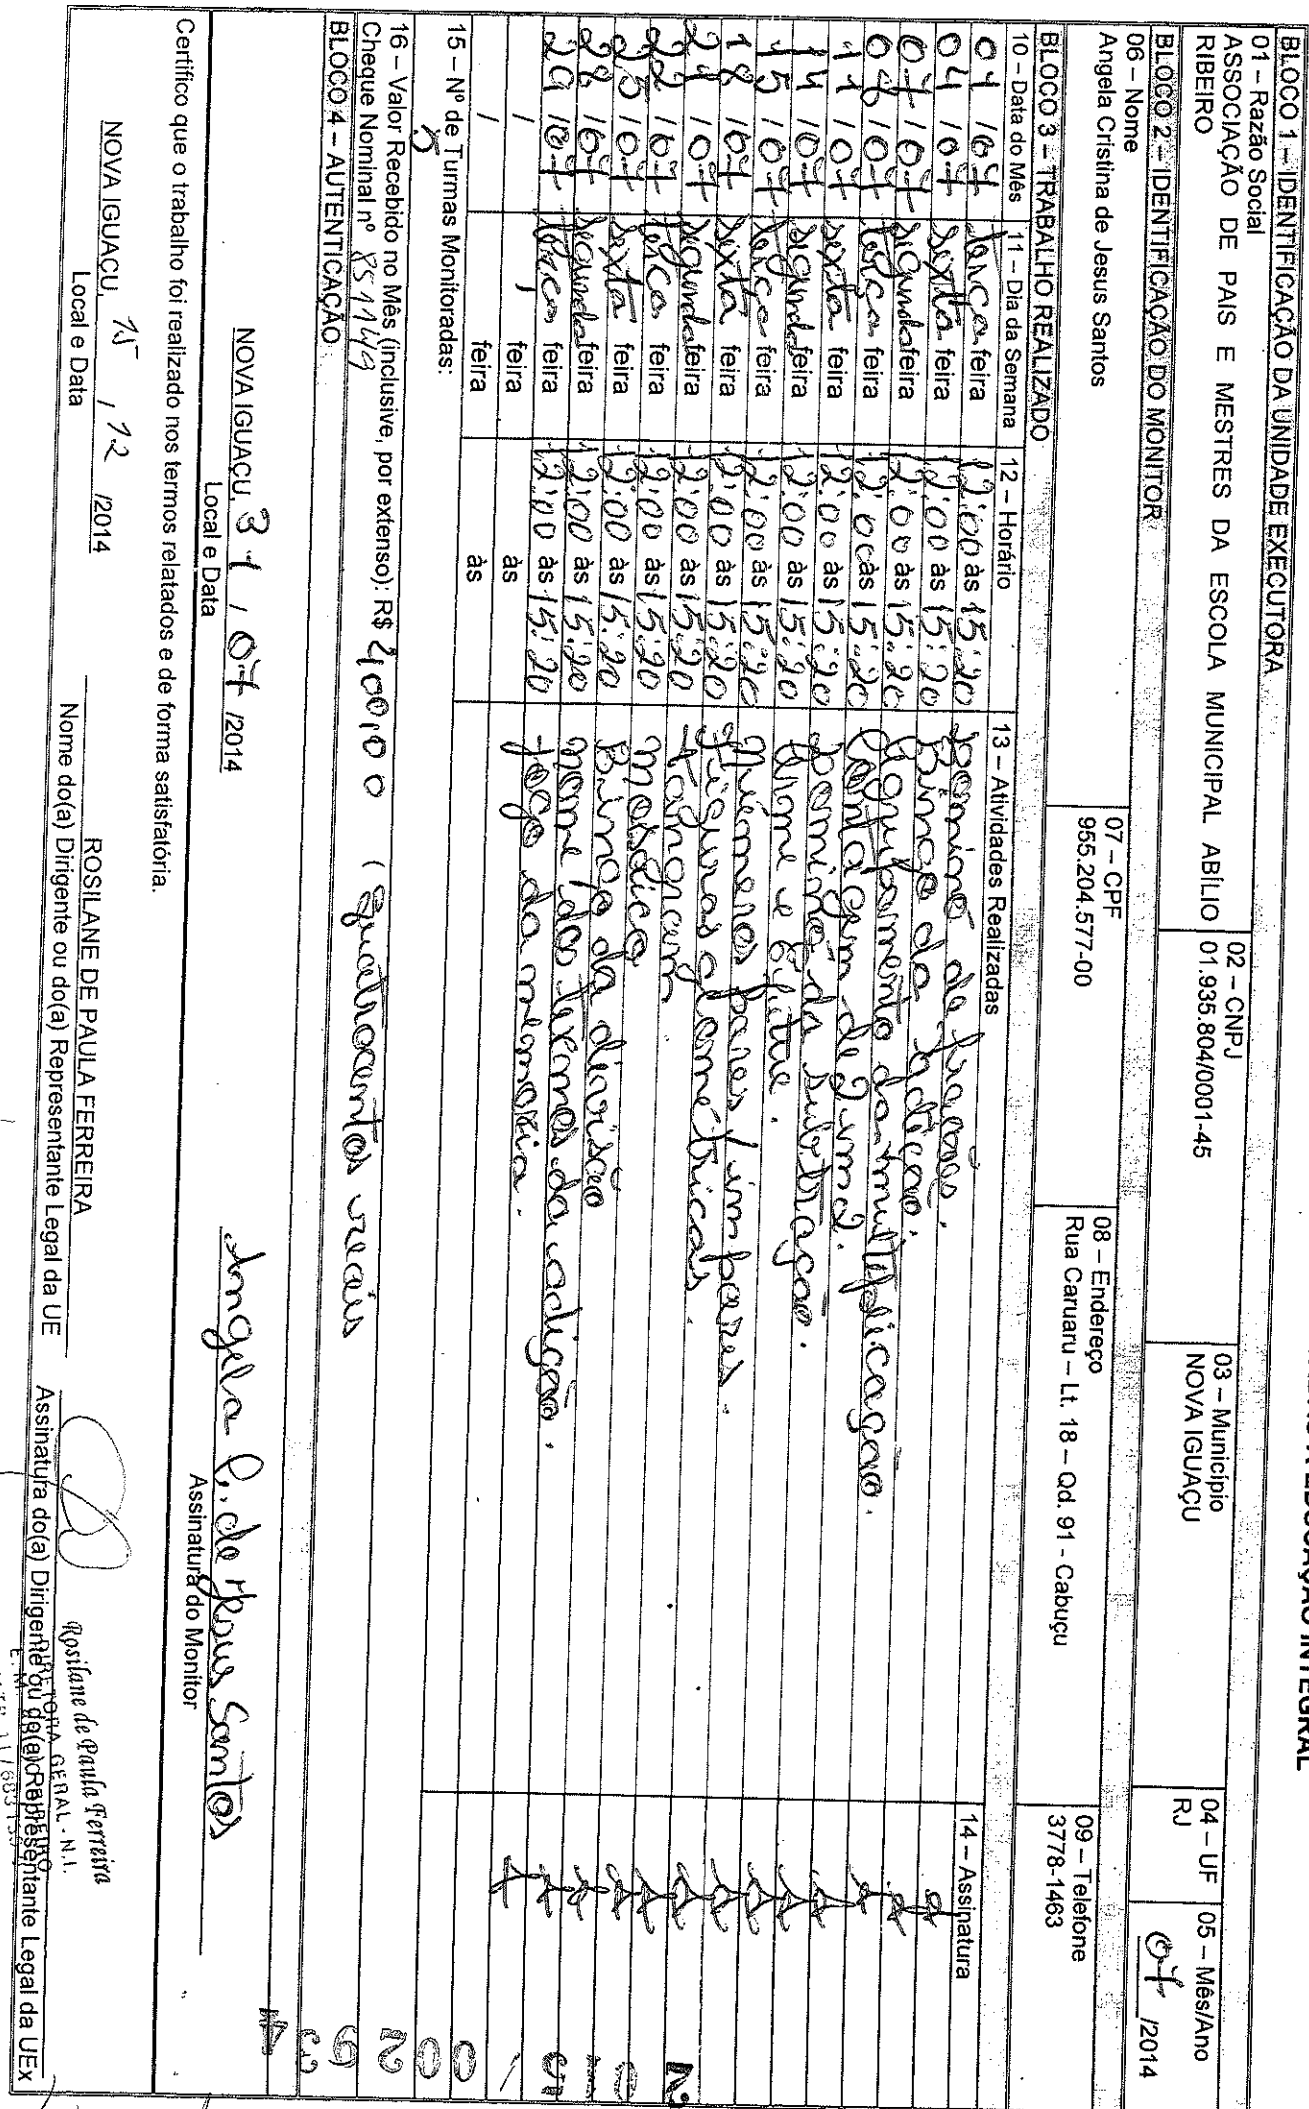 EDUCAÇÃO INTEGRAL
BLOCO 1 – IDENTIFICAÇÃO DA UNIDADE EXECUTORA
01 – Razão Social
ASSOCIAÇÃO DE PAIS E MESTRES DA ESCOLA MUNICIPAL ABÍLIO
RIBEIRO
02 – CNPJ
01.935.804/0001-45
03 – Município
NOVA IGUAÇU
04 – UF
RJ
05 – Mês/Ano
07 /2014
BLOCO 2 – IDENTIFICAÇÃO DO MONITOR
06 – Nome
Angela Cristina de Jesus Santos
07 – CPF
955.204.577-00
08 – Endereço
Rua Caruaru – Lt. 18 – Qd. 91 - Cabuçu
09 – Telefone
3778-1463
BLOCO 3 – TRABALHO REALIZADO
10 – Data do Mês 11 – Dia da Semana 12 – Horário 13 – Atividades Realizadas 14 – Assinatura
01 /07 terça feira 12:00 às 15:20 Dominó de frações.
04 /07 sexta feira 12:00 às 15:20 Bingo da adição.
07 /07 segunda feira 12:00 às 15:20 Agrupamento da multiplicação.
08 /07 terça feira 12:00 às 15:20 Contagem de 2 em 2.
11 /07 sexta feira 12:00 às 15:20 Dominó da subtração.
14 /07 segunda feira 12:00 às 15:20 Arme e Efetue.
15 /07 terça feira 12:00 às 15:20 Números pares/ímpares.
18 /07 sexta feira 12:00 às 15:20 Figuras geométricas.
21 /07 segunda feira 12:00 às 15:20 Tangram
22 /07 terça feira 12:00 às 15:20 Mosaico
25 /07 sexta feira 12:00 às 15:20 Bingo da divisão
28 /07 segunda feira 12:00 às 15:20 nome dos termos da adição.
29 /07 terça feira 12:00 às 15:20 jogo da memoria.
/ feira às
/ feira às
15 – Nº de Turmas Monitoradas:
5
16 – Valor Recebido no Mês (inclusive, por extenso): R$ 400,00 (quatrocentos reais
Cheque Nominal nº 851149
BLOCO 4 – AUTENTICAÇÃO
002934
NOVA IGUAÇU, 31 / 07 /2014
Local e Data
Angela C. de Jesus Santos
Assinatura do Monitor
Certifico que o trabalho foi realizado nos termos relatados e de forma satisfatória.
NOVA IGUAÇU, 15 / 12 /2014
Local e Data
ROSILANE DE PAULA FERREIRA
Nome do(a) Dirigente ou do(a) Representante Legal da UE
Rosilane de Paula Ferreira
DIRETORA GERAL - N.I.
Assinatura do(a) Dirigente ou do(a) Representante Legal da UEx